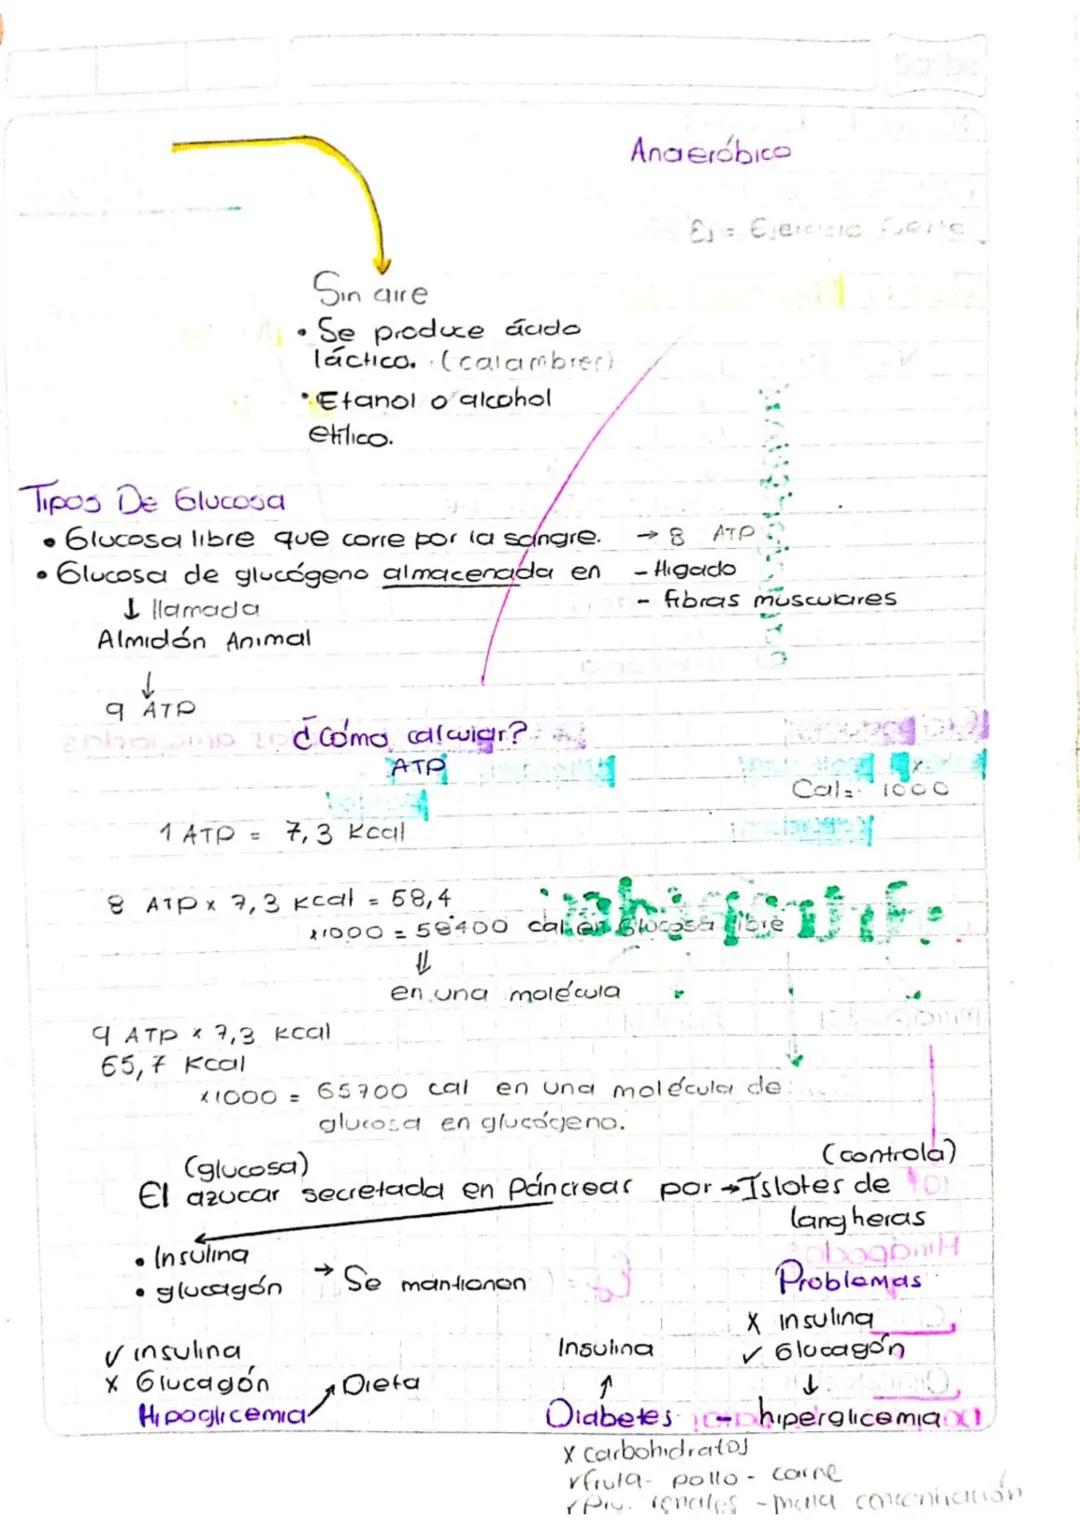 Scribe
Anaeróbico
Ej = Ejercicio fuerte
Sin aire
• Se produce ácido
láctico. (calambres)
• Etanol o alcohol
etílico.
Tipos De Glucosa
• Glucosa libre que corre por la sangre. → 8 ATP
• Glucosa de glucógeno almacenada en - Hígado
- fibras musculares
↓ llamada
Almidón Animal
↓
9 ATP
¿Cómo calcular?
ATP
Cal = x 1000
1 ATP = 7,3 Kcal
8 ATP x 7,3 Kcal = 58,4
x1000 = 58400 cal en Glucosa libre
⇓
en una molécula
9 ATP x 7,3 Kcal
65,7 Kcal
x1000 = 65700 cal en una molécula de
glucosa en glucógeno.
(glucosa) (controla)
El azucar secretada en Páncreas por → Islotes de
langheras
• Insulina
• glucagón → Se mantienen
Problemas
X insulina
✓ Glucagón
↓
hiperglicemia
✓ insulina
X Glucagón
Hipoglicemia ↗ Dieta
Insulina
↑
Diabetes
X carbohidratos
✓ fruta - pollo - carne
renales - mala concentración